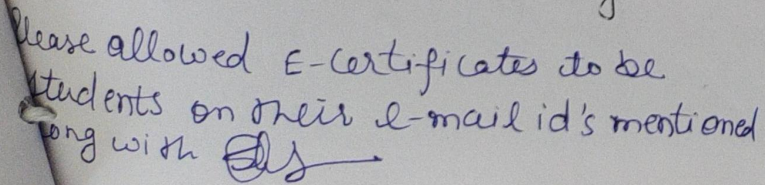 Please allowed E-certificates to be
students on their e-mail id's mentioned
long with